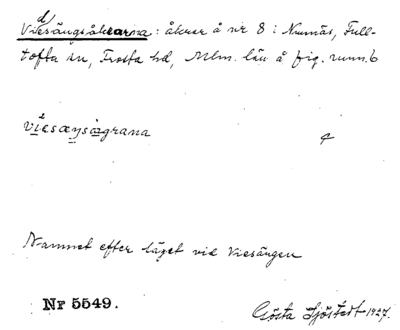 Viesängsåkrarna: åkrar å nr 8 i Nunnäs, Full-
tofta sn, Frosta hd, Mlm. län å fig. rum. 6
viesæŋsågrana 4
Namnet efter läget vid Viesängen
Nr 5549.
Gösta Sjöstedt 1927.